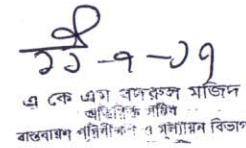 ২১-৭-১৭
এ কে এম বদরুল মজিদ
অতিরিক্ত সচিব
বাস্তবায়ন পরিবীক্ষণ ও মূল্যায়ন বিভাগ